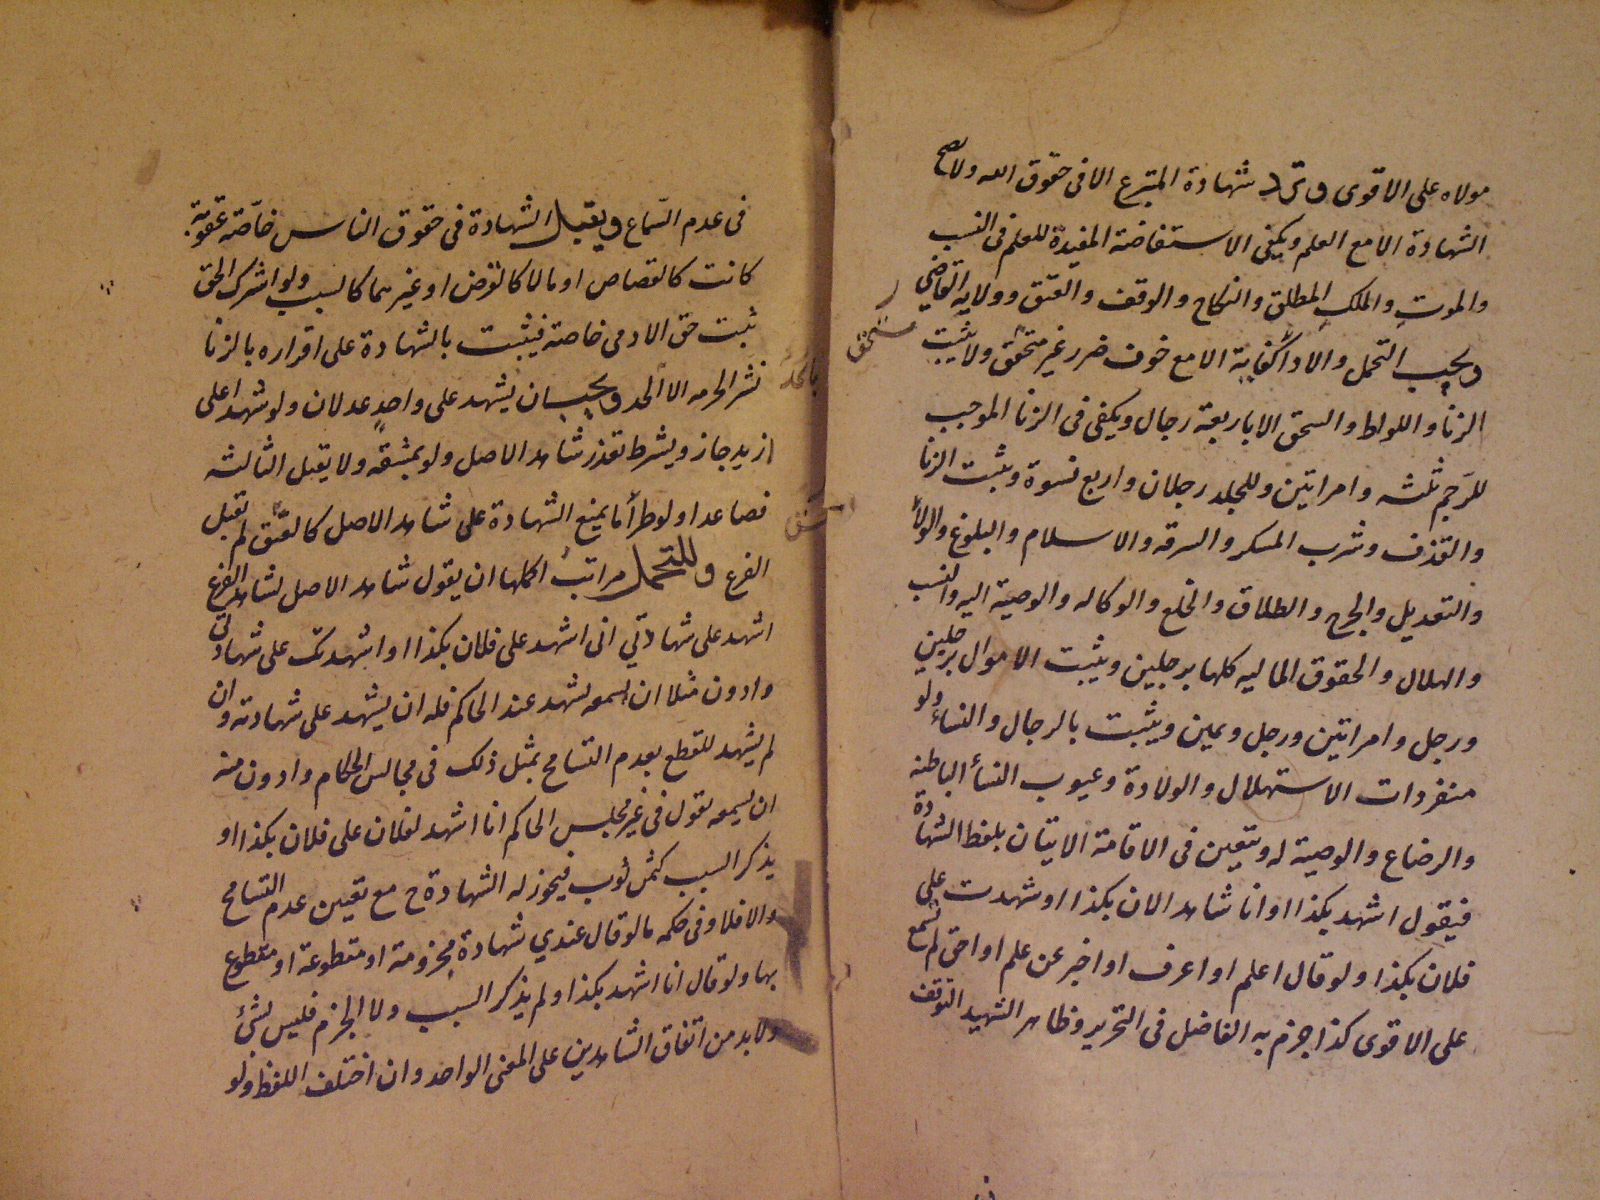 مولاه على الاقوى وترد شهادة المتبرع الا فى حقوق الله ولا يصح
الشهادة الا مع العلم ويكفى الاستفاضة المفيدة للعلم فى النسب
والموت والملك المطلق والنكاح والوقف والعتق وولاية القاضي
ويجب التحمل والاداء كفاية الا مع خوف ضرر غير مستحق ولا يثبت
الزنا واللواط والسحق الا باربعة رجال ويكفى فى الزنا الموجب
للرجم ثلثه وامراتين وللجلد رجلان واربع نسوة ويثبت الزنا
والقذف وشرب المسكر والسرقه والاسلام والبلوغ والولاء
والتعديل والجرح والطلاق والخلع والوكاله والوصية اليه والنسب
والهلال والحقوق الماليه كلها برجلين ويثبت الاموال برجلين
ورجل وامراتين ورجل ويمين ويثبت بالرجال والنساء ولو
منفردات الاستهلال والولادة وعيوب النساء الباطنه
والرضاع والوصية له ويتعين فى الاقامة الاتيان بلفظ الشهادة
فيقول اشهد بكذا او انا شاهد الان بكذا او شهدت على
فلان بكذا ولو قال اعلم او اعرف او اخبر عن علم او احق لم تسمع
على الاقوى كذا جزم به الفاضل فى التحرير وظاهر الشهيد التوقف
مستحق
فى عدم السماع ويقبل الشهادة فى حقوق الناس خاصّة عقوبة
كانت كالقصاص او مالا كالقرض او غيرهما كالسبب ولو اشترك الحق
ثبت حق الادمى خاصة فيثبت بالشهادة على اقراره بالزنا
نشر الحرمه الا الحد ويجب ان يشهد على واحدٍ عدلان ولو شهدا على
ازيد جاز ويشترط تعذر شاهد الاصل ولو بمشقه ولا يقبل الثالثه
فصاعدا ولو طرأ ما يمنع الشهادة على شاهد الاصل كالفسق لم تقبل
الفرع وللتحمل مراتب اكملها ان يقول شاهد الاصل لشاهد الفرع
اشهد على شهادتي انى اشهد على فلان بكذا او اشهدتك على شهادتي
وادون مثلا ان يسمعه يشهد عند الحاكم فله ان يشهد على شهادته وان
لم يشهد للقطع بعدم التسامح بمثل ذلك فى مجالس الحكام وادون منه
ان يسمعه يقول فى غير مجلس الحاكم انا اشهد لفلان على فلان بكذا او
يذكر السبب كثمن ثوب فيجوز له الشهادة ح مع تعيين عدم التسامح
والا فلا وفى حكمه ما لو قال عندي شهادة مجزومة او مقطوعة او مقطوع
بها ولو قال انا اشهد بكذا ولم يذكر السبب ولا الجزم فليس بشئ
ولابد من اتفاق الشاهدين على المعنى الواحد وان اختلف اللفظ ولو